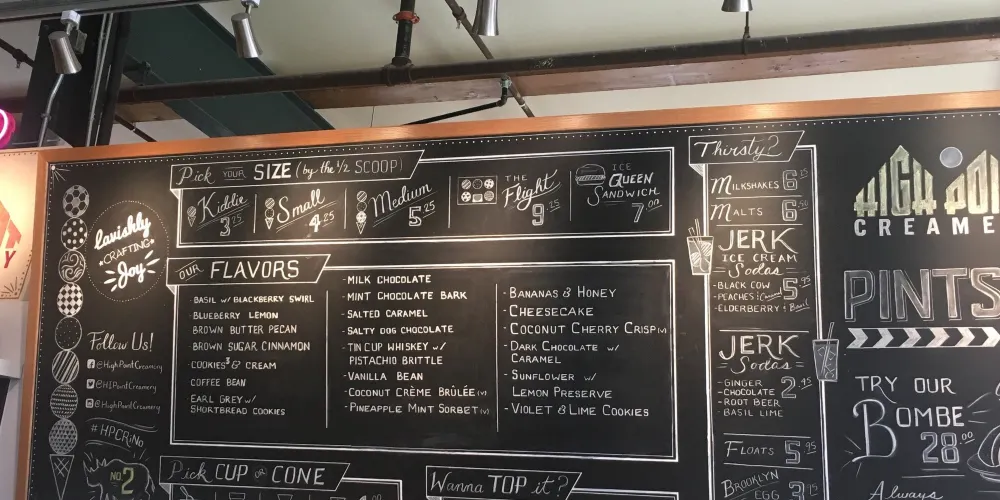 Pick YOUR SIZE (by the ½ SCOOP)
Kiddie 3.25
Small 4.25
Medium 5.25
THE Flight 9.25
ICE QUEEN SANDWICH 7.00
lavishly
CRAFTING
Joy
OUR FLAVORS
BASIL W/ BLACKBERRY SWIRL
- BLUEBERRY LEMON
BROWN BUTTER PECAN
- BROWN SUGAR CINNAMON
-COOKIES³ & CREAM
COFFEE BEAN
EARL GREY W/
SHORTBREAD COOKIES
- MILK CHOCOLATE
- MINT CHOCOLATE BARK
- SALTED CARAMEL
- SALTY DOG CHOCOLATE
- TIN CUP WHISKEY W/
PISTACHIO BRITTLE
- VANILLA BEAN
- COCONUT CRÈME BRÛLÉE (V)
- PINEAPPLE MINT SORBET (V)
- BANANAS & HONEY
- CHEESECAKE
- COCONUT CHERRY CRISP (V)
- DARK CHOCOLATE W/
CARAMEL
- SUNFLOWER W/
LEMON PRESERVE
- VIOLET & LIME COOKIES
Follow Us!
@HighPointCreamery
@HIPointCreamery
@HighPointCreamery
#HPCRiNo
NO. 2
Pick CUP or CONE
Wanna TOP it?
Thirsty?
MILKSHAKES 6
MALTS 6.50
JERK
ICE CREAM
Sodas
- BLACK COW 5.95
- PEACHES & Caramel
- ELDERBERRY & Basil
JERK
Sodas
- GINGER
- CHOCOLATE 2.95
- ROOT BEER
- BASIL LIME
FLOATS 5.95
BROOKLYN
EGG 3
HIGH PO
CREAME
PINTS
TRY OUR
BOMBE
28.00
Always